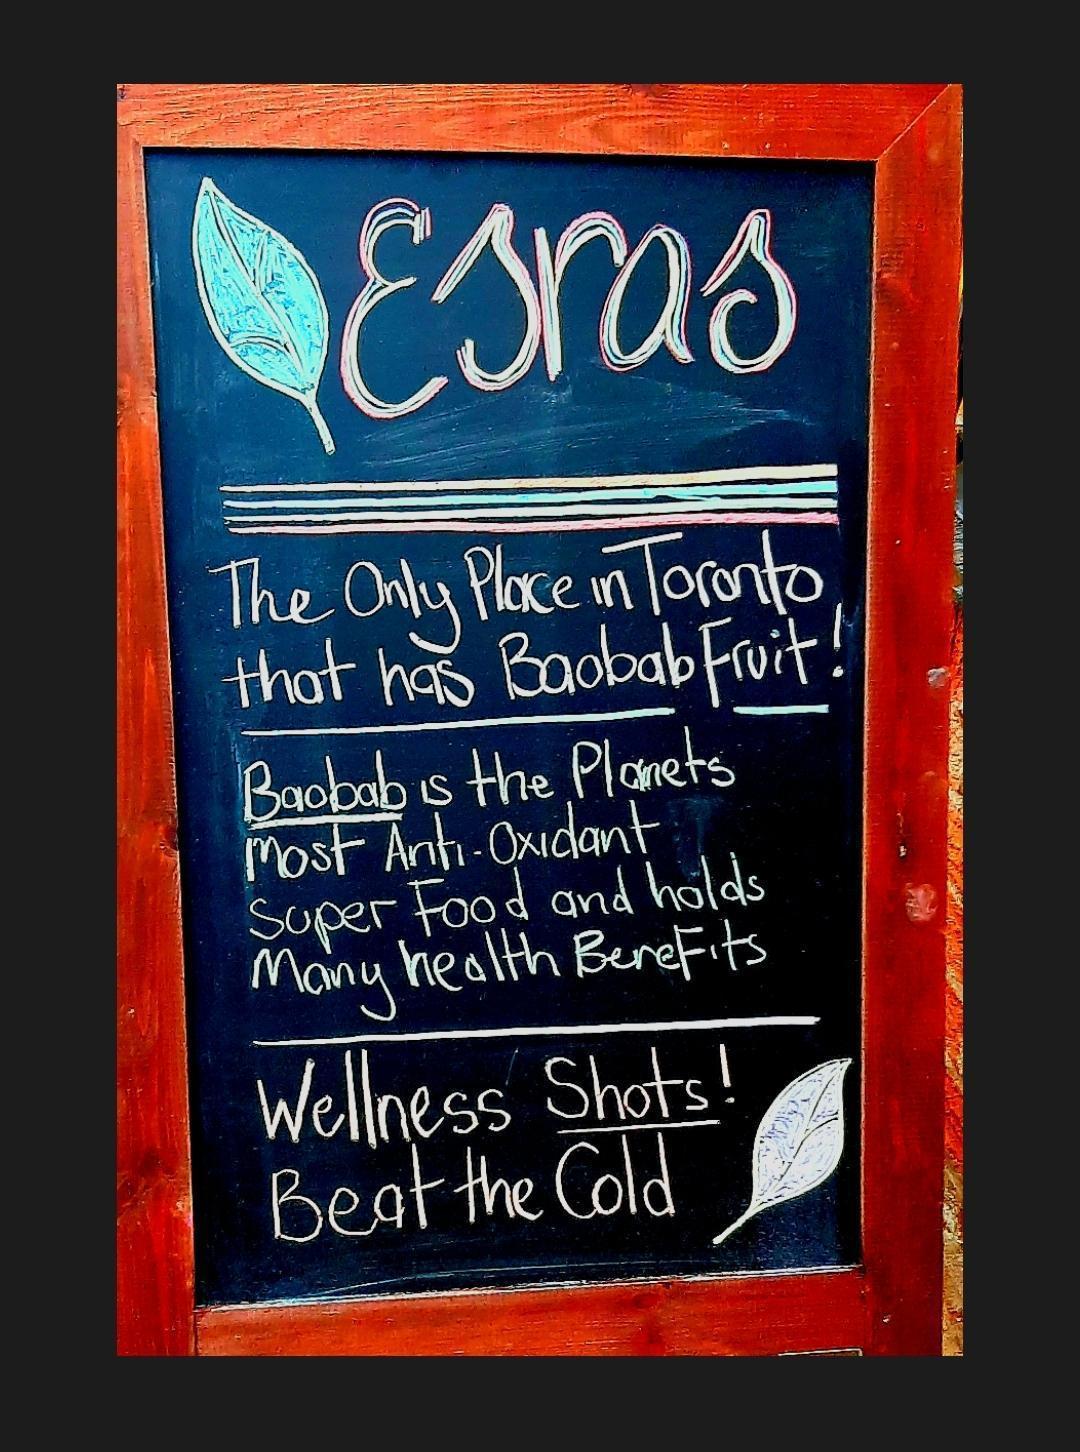 Esras
The Only Place in Toronto
that has Baobab Fruit!
Baobab is the Planets
Most Anti-Oxidant
Super Food and holds
Many health Benefits
Wellness Shots!
Beat the Cold